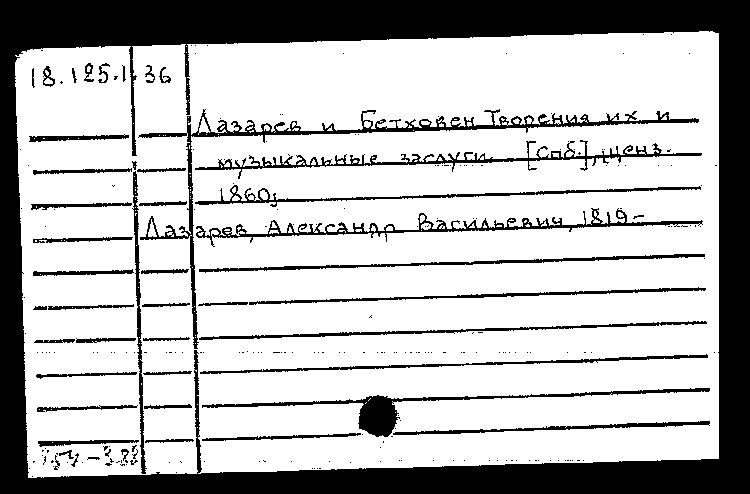 18.125.1.36
Лазарев и Бетховен Творения их и
музыкальные заслуги. [Спб.], ценз.
1860;
Лазарев, Александр Васильевич, 1819-